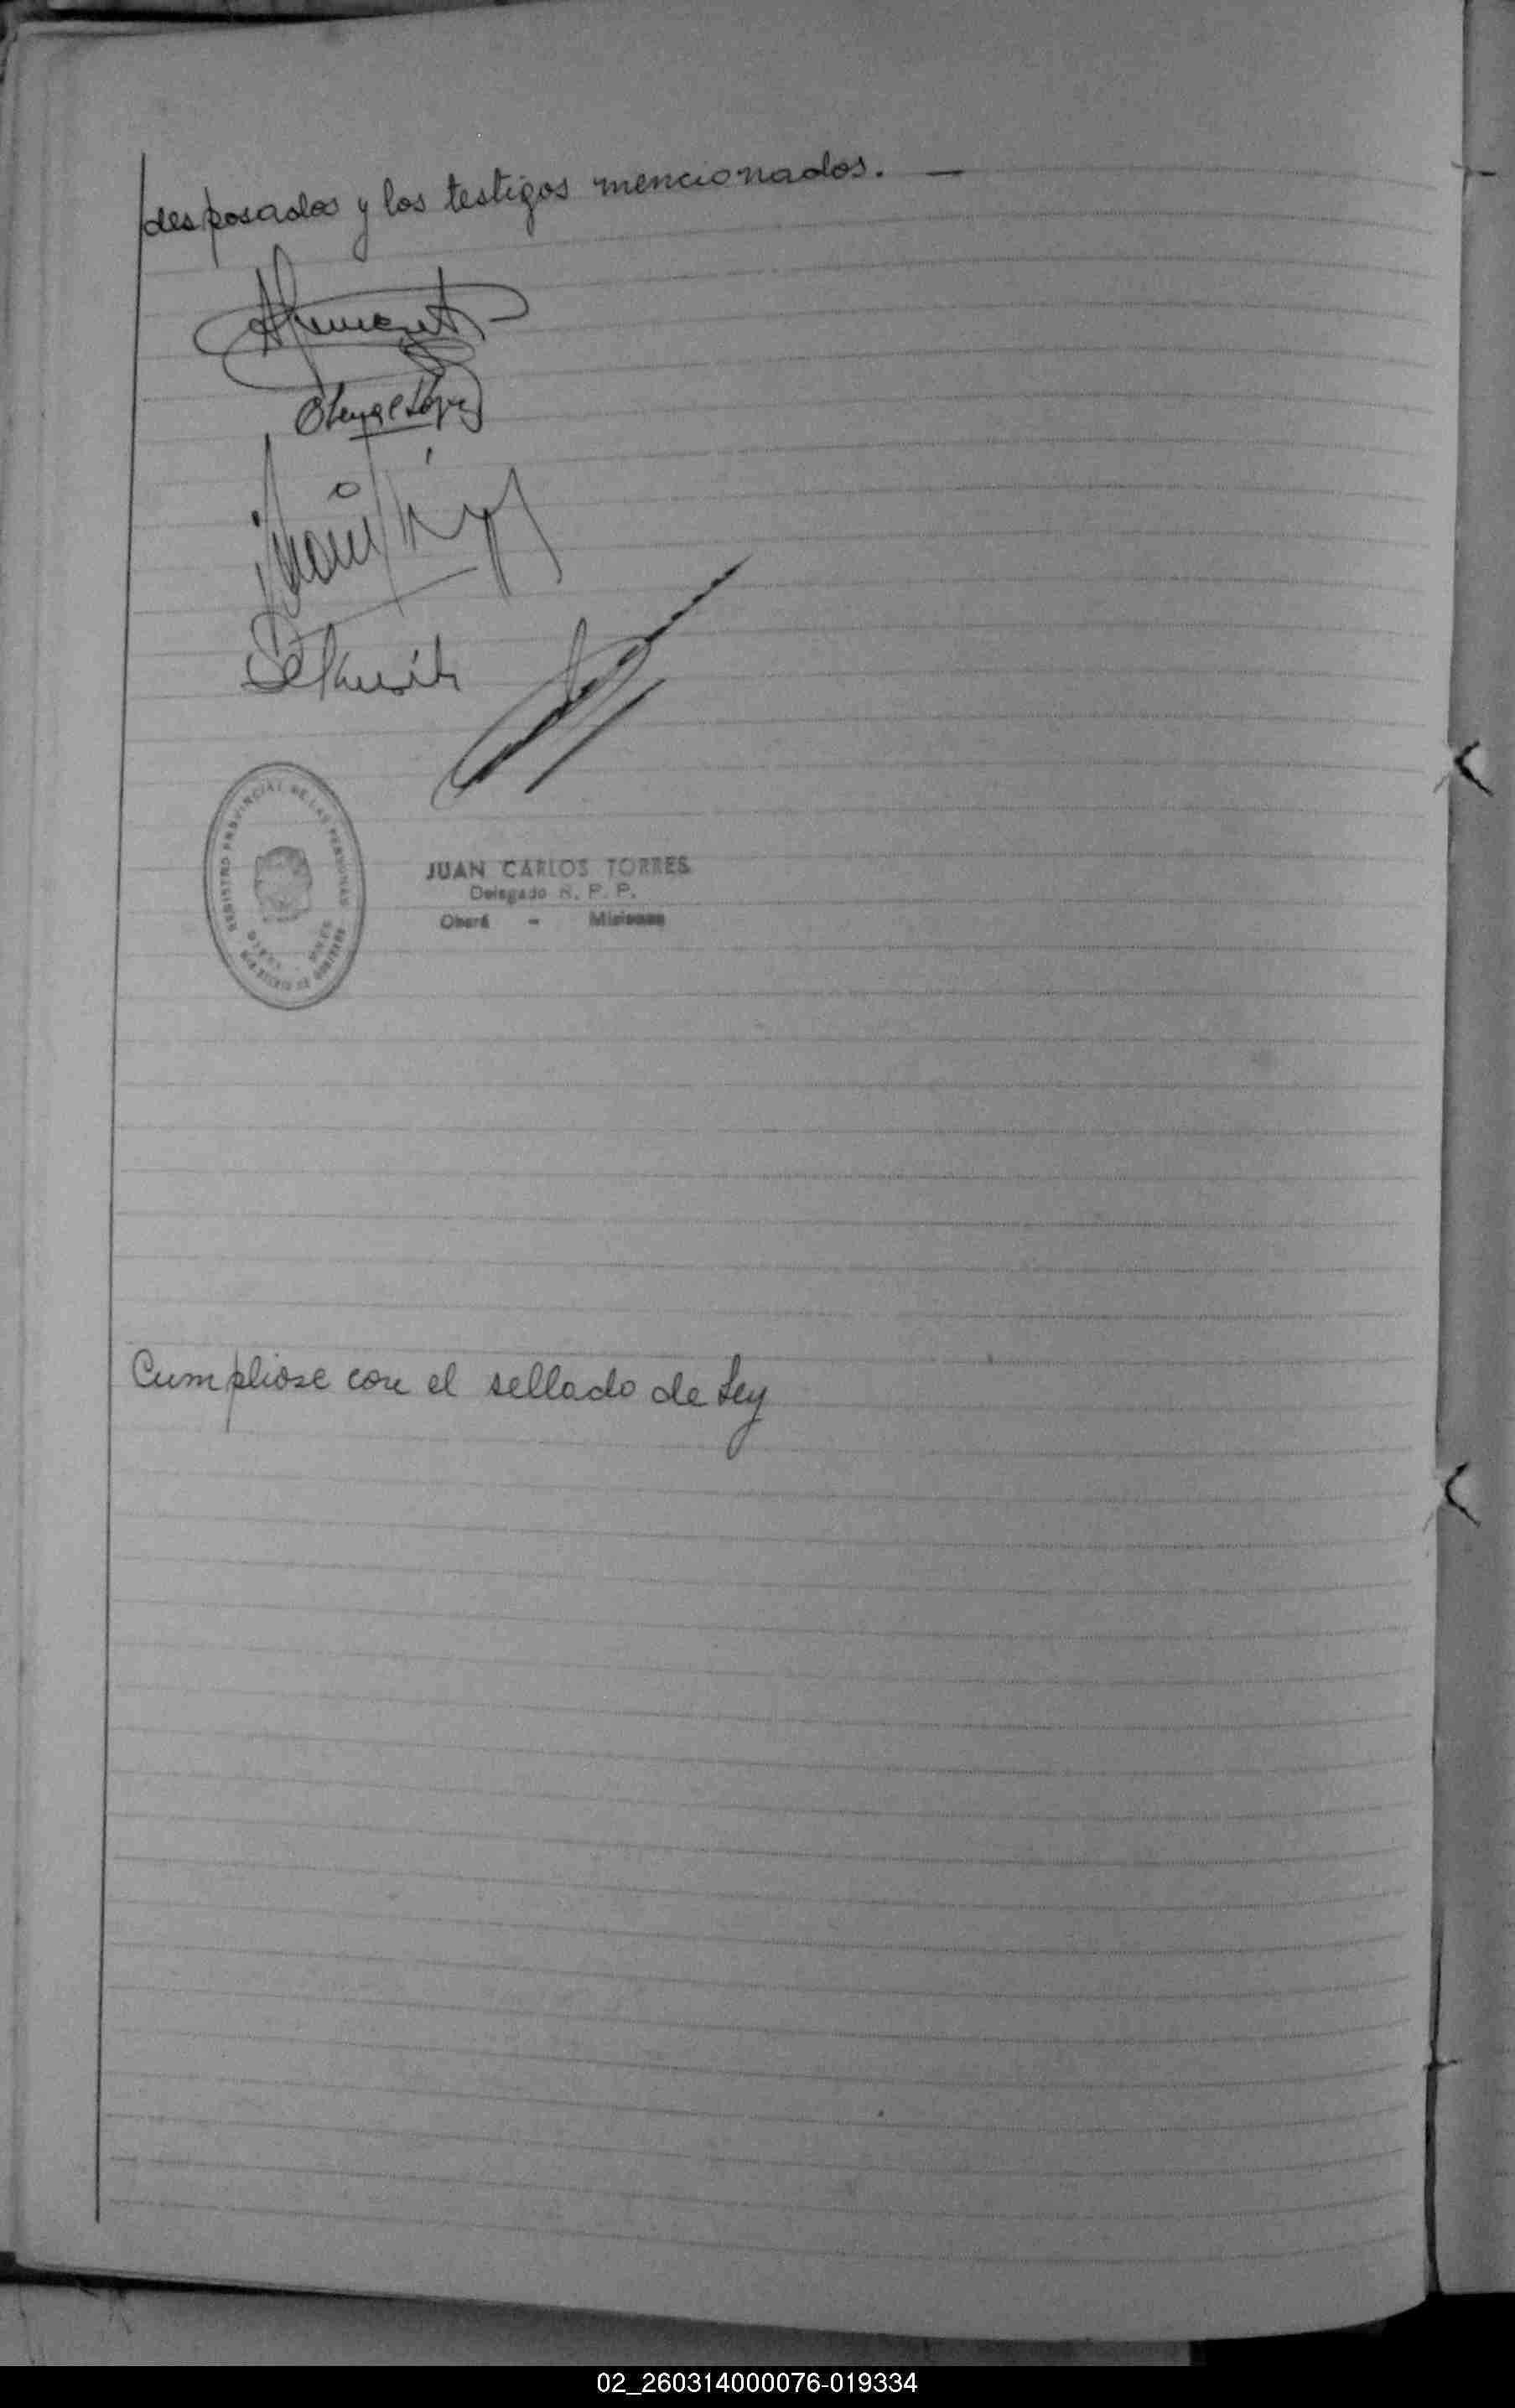 desposados y los testigos mencionados. —
REGISTRO PROVINCIAL DE LAS PERSONAS
MINISTERIO DE GOBIERNO
JUAN CARLOS TORRES
Delegado R. P. P.
Oberá - Misiones
Cumpliose con el sellado de Ley
02_260314000076-019334